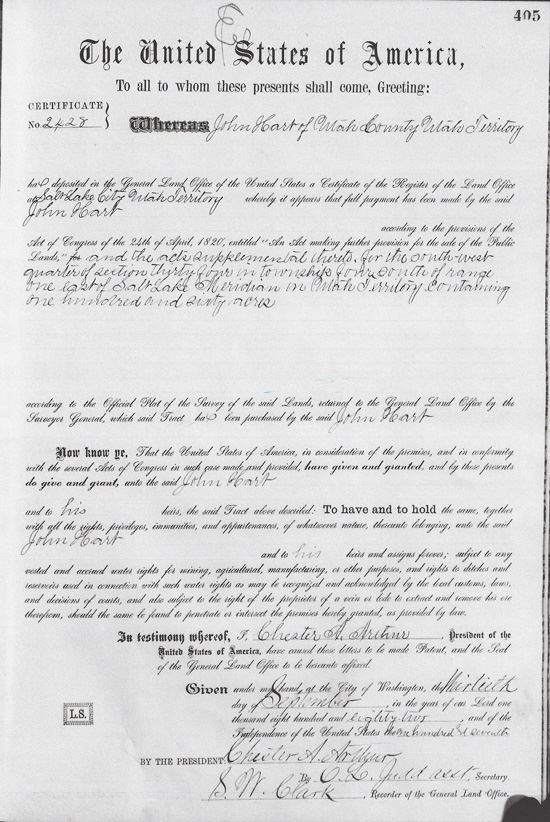 405
The United States of America,
To all to whom these presents shall come, Greeting:
CERTIFICATE
No. 2428
Whereas John Hart of Utah County Utah Territory
has deposited in the General Land Office of the United States a Certificate of the Register of the Land Office
at Salt Lake City Utah Territory whereby it appears that full payment has been made by the said
John Hart
according to the provisions of the
Act of Congress of the 24th of April, 1820, entitled "An Act making further provision for the sale of the Public
Lands," and the acts supplemental thereto, for the south west
quarter of section thirty four in township four south of range
one east of Salt Lake Meridian in Utah Territory containing
one hundred and sixty acres
according to the Official Plat of the Survey of the said Lands, returned to the General Land Office by the
Surveyor General, which said Tract has been purchased by the said John Hart
Now know ye, That the United States of America, in consideration of the premises, and in conformity
with the several Acts of Congress in such case made and provided, have given and granted, and by these presents
do give and grant, unto the said John Hart
and to his heirs, the said Tract above described: To have and to hold the same, together
with all the rights, privileges, immunities, and appurtenances, of whatsoever nature, thereunto belonging, unto the said
John Hart
and to his heirs and assigns forever; subject to any
vested and accrued water rights for mining, agricultural, manufacturing, or other purposes, and rights to ditches and
reservoirs used in connection with such water rights as may be recognized and acknowledged by the local customs, laws,
and decisions of courts, and also subject to the right of the proprietor of a vein or lode to extract and remove his ore
therefrom, should the same be found to penetrate or intersect the premises hereby granted, as provided by law.
In testimony whereof, I, Chester A. Arthur, President of the
United States of America, have caused these letters to be made Patent, and the Seal
of the General Land Office to be hereunto affixed.
Given under my hand, at the City of Washington, the thirtieth
day of September, in the year of our Lord one
thousand eight hundred and eighty two, and of the
Independence of the United States the one hundred and seventh
L.S.
BY THE PRESIDENT: Chester A. Arthur
By O. L. Judd asst. Secretary.
S. W. Clark, Recorder of the General Land Office.